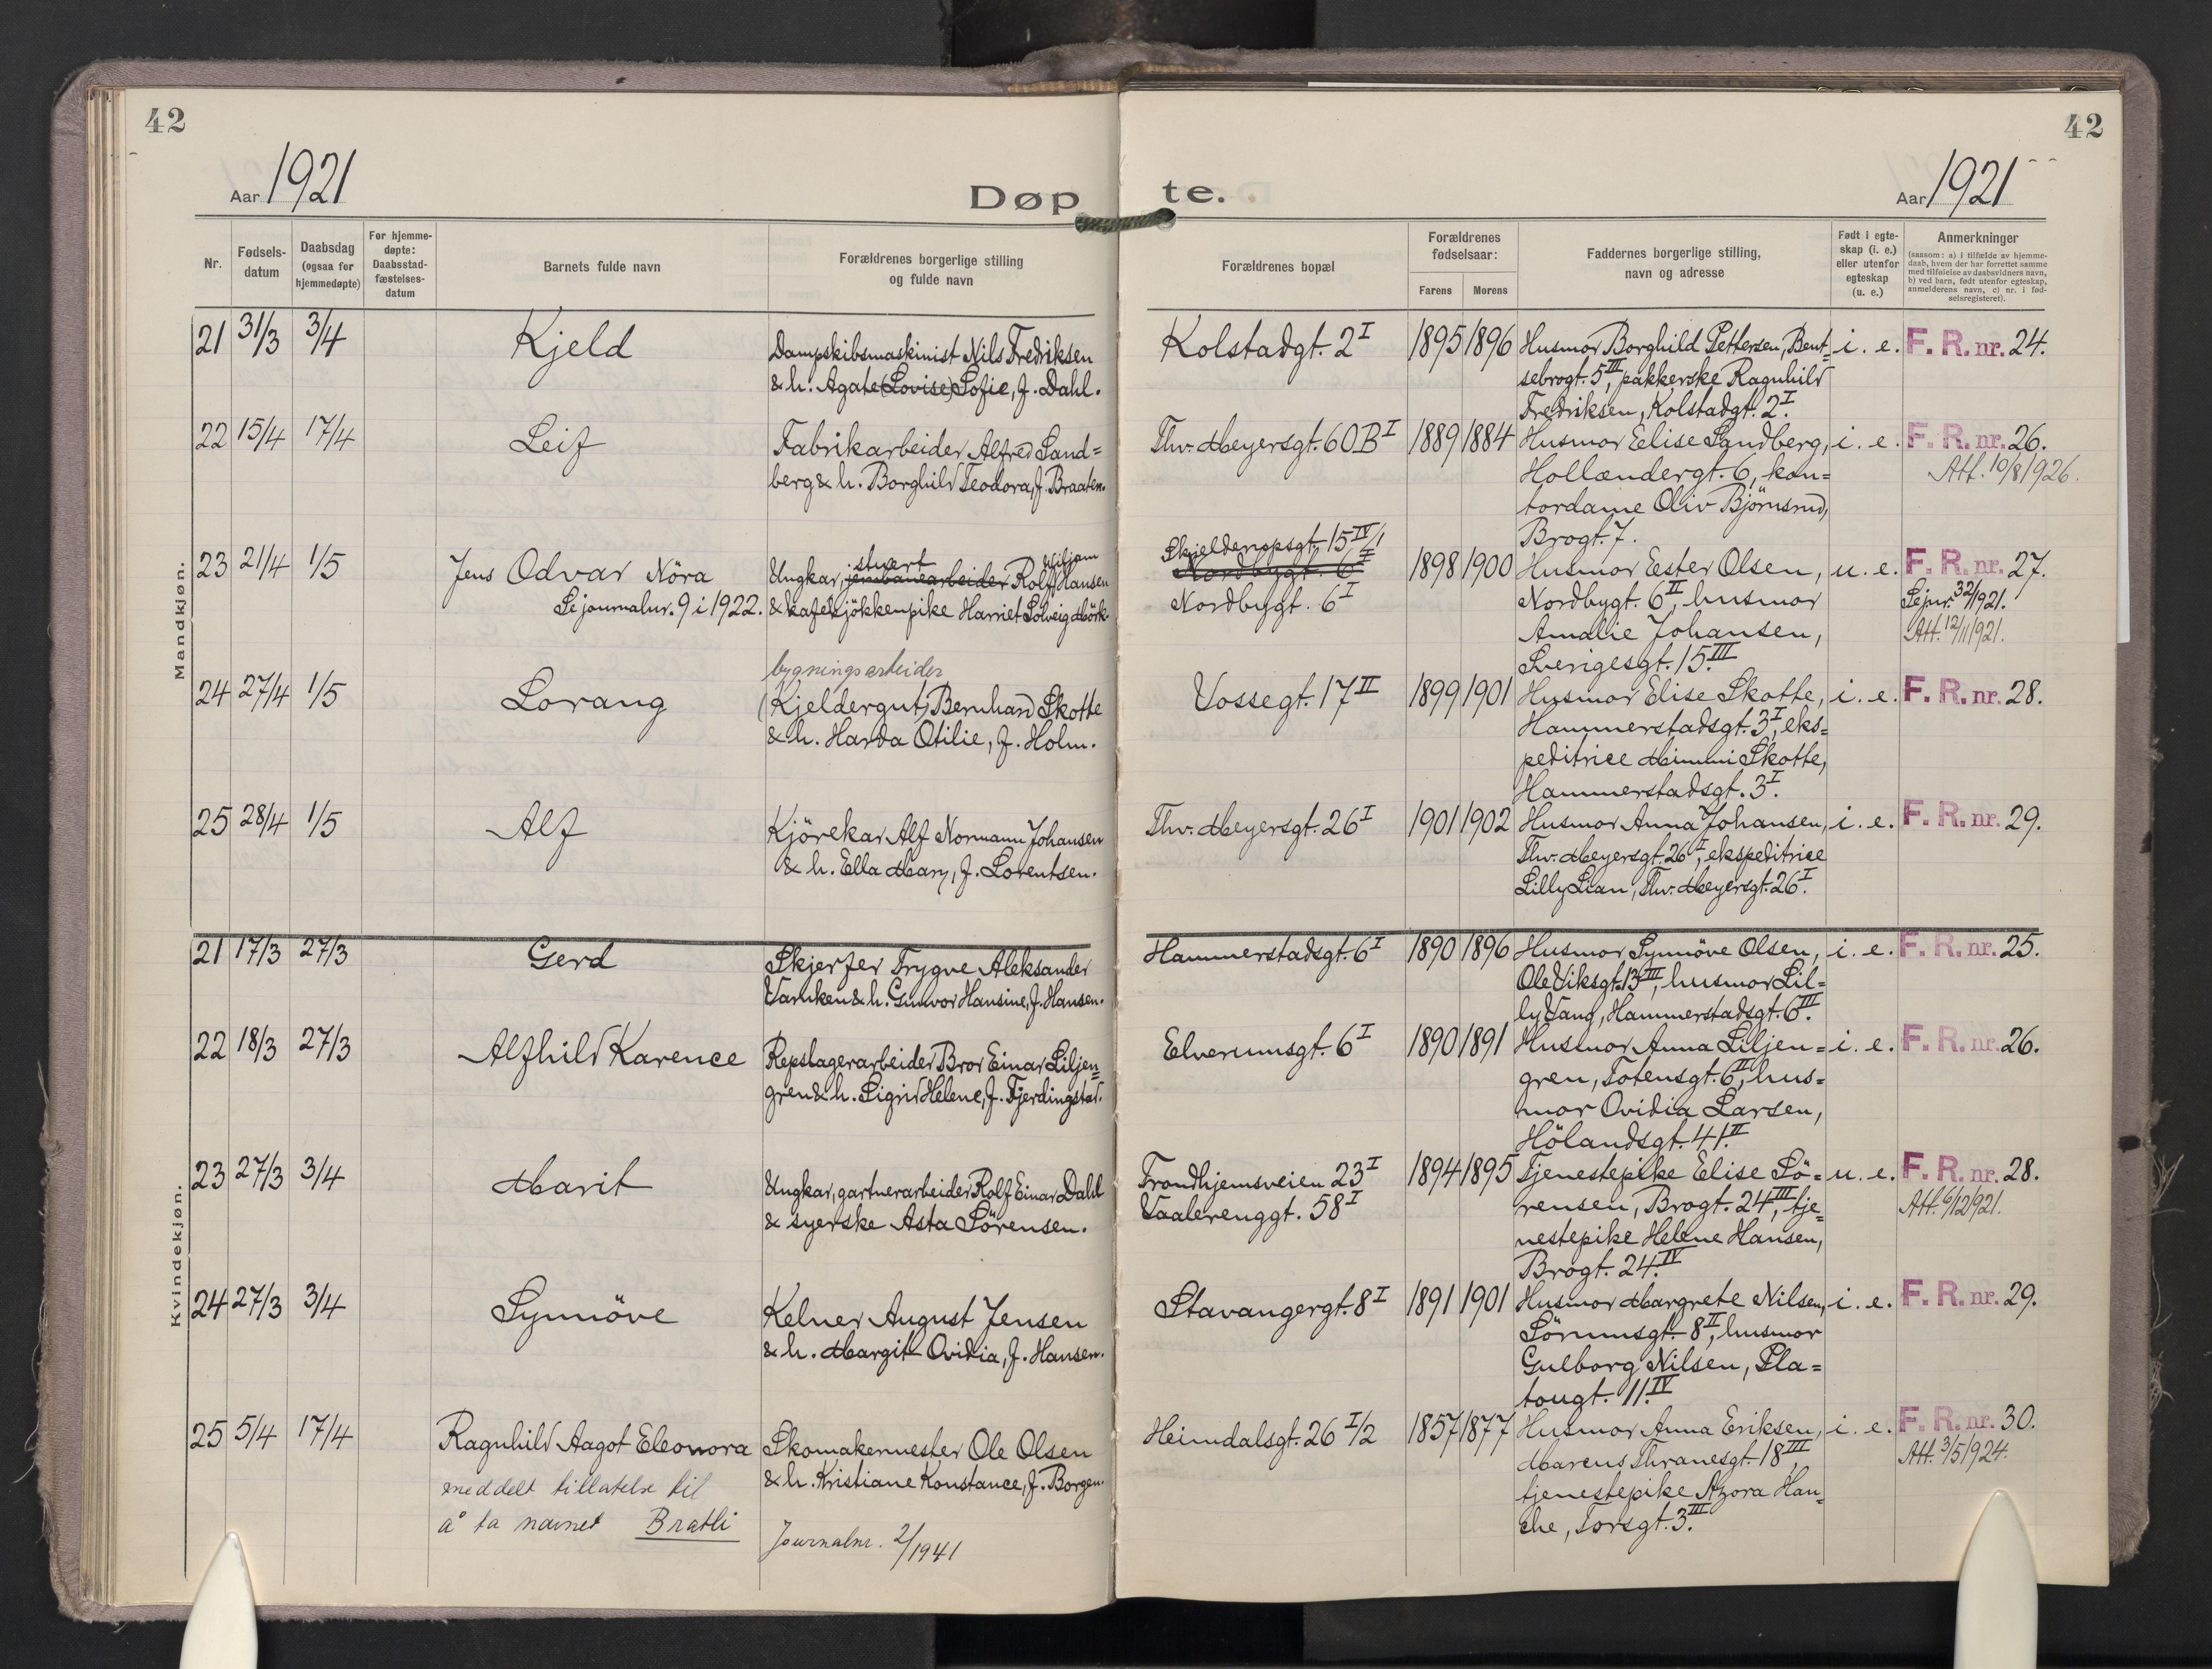 42
42
Aar 1921
Døpte.
Aar 1921
Nr.
Fødsels-
datum
Daabsdag
(ogsaa for
hjemmedøpte)
For hjemme-
døpte:
Daabsstad-
fæstelses-
datum
Barnets fulde navn
Forældrenes borgerlige stilling
og fulde navn
Forældrenes bopæl
Forældrenes
fødselsaar:
Farens
Morens
Faddernes borgerlige stilling,
navn og adresse
Født i egte-
skap (i. e.)
eller utenfor
egteskap
(u. e.)
Anmerkninger
(saasom: a) i tilfælde av hjemme-
daab, hvem der har forrettet samme
med tilføielse av daabsvidners navn,
b) ved barn, født utenfor egteskap,
anmelderens navn, c) nr. i fød-
selsregisteret).
Mandkjøn.
21 31/3 3/4 Kjeld
Dampskibsmaskinist Nils Fredriksen
& h. Agate (Lovise) Sofie, f. Dahl.
Kolstadgt. 2 I
1895 1896
Husmor Borghild Pettersen, Bent=
sebrogt. 5 III, pakkerske Ragnhild
Fredriksen, Kolstadgt. 2 I.
i. e. F. R. nr. 24.
22 15/4 17/4 Leif
Fabrikarbeider Alfred Sand=
berg & h. Borghild Teodora, f. Braaten.
Thv. Meyersgt. 60 B I
1889 1884
Husmor Elise Sandberg,
Hollændergt. 6, kon=
tordame Oliv Björnsrud,
Brogt. 7.
i. e. F. R. nr. 26.
Att. 10/8 1926.
23 21/4 1/5 Jens Odvar Nöra
Se journalnr. 9 i 1922.
stuert Viljam
Ungkar, jernbanearbeider Rolf Hansen
& kafékjökkenpike Harriet Solveig Mörk.
Skjelderupsgt. 15 IV/1
Nordbygt. 6 I
Nordbygt. 6 I
1898 1900
Husmor Ester Olsen,
Nordbygt. 6 II, husmor
Amalie Johansen,
Sverigesgt. 15 III.
u. e. F. R. nr. 27.
Se jnr. 32/1921.
Att. 12/11 1921.
24 27/4 1/5 Lorang
bygningsarbeider
(Kjeldergut) Bernhard Skotte
& h. Harda Otilie, f. Holm.
Vossegt. 17 II
1899 1901
Husmor Elise Skotte,
Hammerstadsgt. 3 I, eks=
peditrice Mimmi Skotte,
Hammerstadsgt. 3 I.
i. e. F. R. nr. 28.
25 28/4 1/5 Alf
Kjörekar Alf Normann Johansen
& h. Ella Mary, f. Lorentsen.
Thv. Meyersgt. 26 I
1901 1902
Husmor Anna Johansen,
Thv. Meyersgt. 26 I, ekspeditrice
Lilly Lian, Thv. Meyersgt. 26 I.
i. e. F. R. nr. 29.
Kvindekjøn.
21 17/3 27/3 Gerd
Skjerfer Trygve Aleksander
& h. Gunvor Hansine, f. Hansen.
Hammerstadsgt. 6 I
1890 1896
Husmor Synnöve Olsen,
Ole Viksgt. 13 III, husmor Lil=
ly Vang, Hammerstadsgt. 6 III.
i. e. F. R. nr. 25.
22 18/3 27/3 Alfhild Karence
Repslagerarbeider Bror Einar Liljen=
gren & h. Sigrid Helene, f. Fjerdingstad.
Elverumsgt. 6 I
1890 1891
Husmor Anna Liljen=
gren, Totensgt. 6 II, hus=
mor Ovidia Larsen,
Hölandsgt. 41 II.
i. e. F. R. nr. 26.
23 27/3 3/4 Marit
Ungkar, gartnerarbeider Rolf Einar Dahl
& syerske Asta Sörensen.
Trondhjemsveien 23 I
Vaalerenggt. 58 I
1894 1895
Tjenestepike Elise Sö=
rensen, Brogt. 24 III, tje=
nestepike Helene Hansen,
Brogt. 24 IV.
u. e. F. R. nr. 28.
Att. 6/12 1921.
24 27/3 3/4 Synnöve
Kelner August Jensen
& h. Margit Ovidia, f. Hansen.
Stavangergt. 8 I
1891 1901
Husmor Margrete Nilsen,
Sörumsgt. 8 II, husmor
Gulborg Nilsen, Pla=
tougt. 11 IV.
i. e. F. R. nr. 29.
25 5/4 17/4 Ragnhild Aagot Eleonora
meddelt tillatelse til
å ta navnet Bratli
Skomakermester Ole Olsen
& h. Kristiane Konstance, f. Borgen.
Journalnr. 2/1941
Heimdalsgt. 26 I/2
1857 1877
Husmor Anna Eriksen,
Marcus Thranesgt. 18 III,
tjenestepike Azora Han=
che, Torsgt. 3 III.
i. e. F. R. nr. 30.
Att. 3/5 1924.